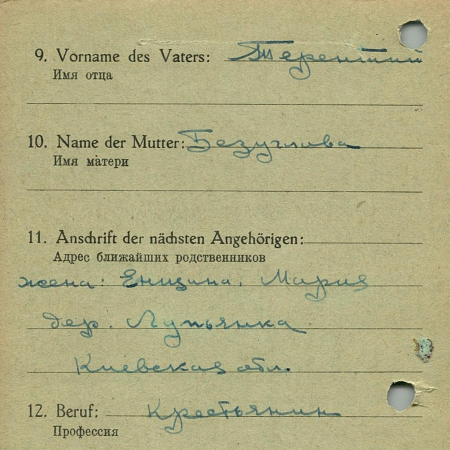 9. Vorname des Vaters: Терентий
Имя отца
10. Name der Mutter: Безуглова
Имя матери
11. Anschrift der nächsten Angehörigen:
Адрес ближайших родственников
жена: Енщина, Мария
дер. Лупьянка
Киевская обл.
12. Beruf: Крестьянин
Профессия